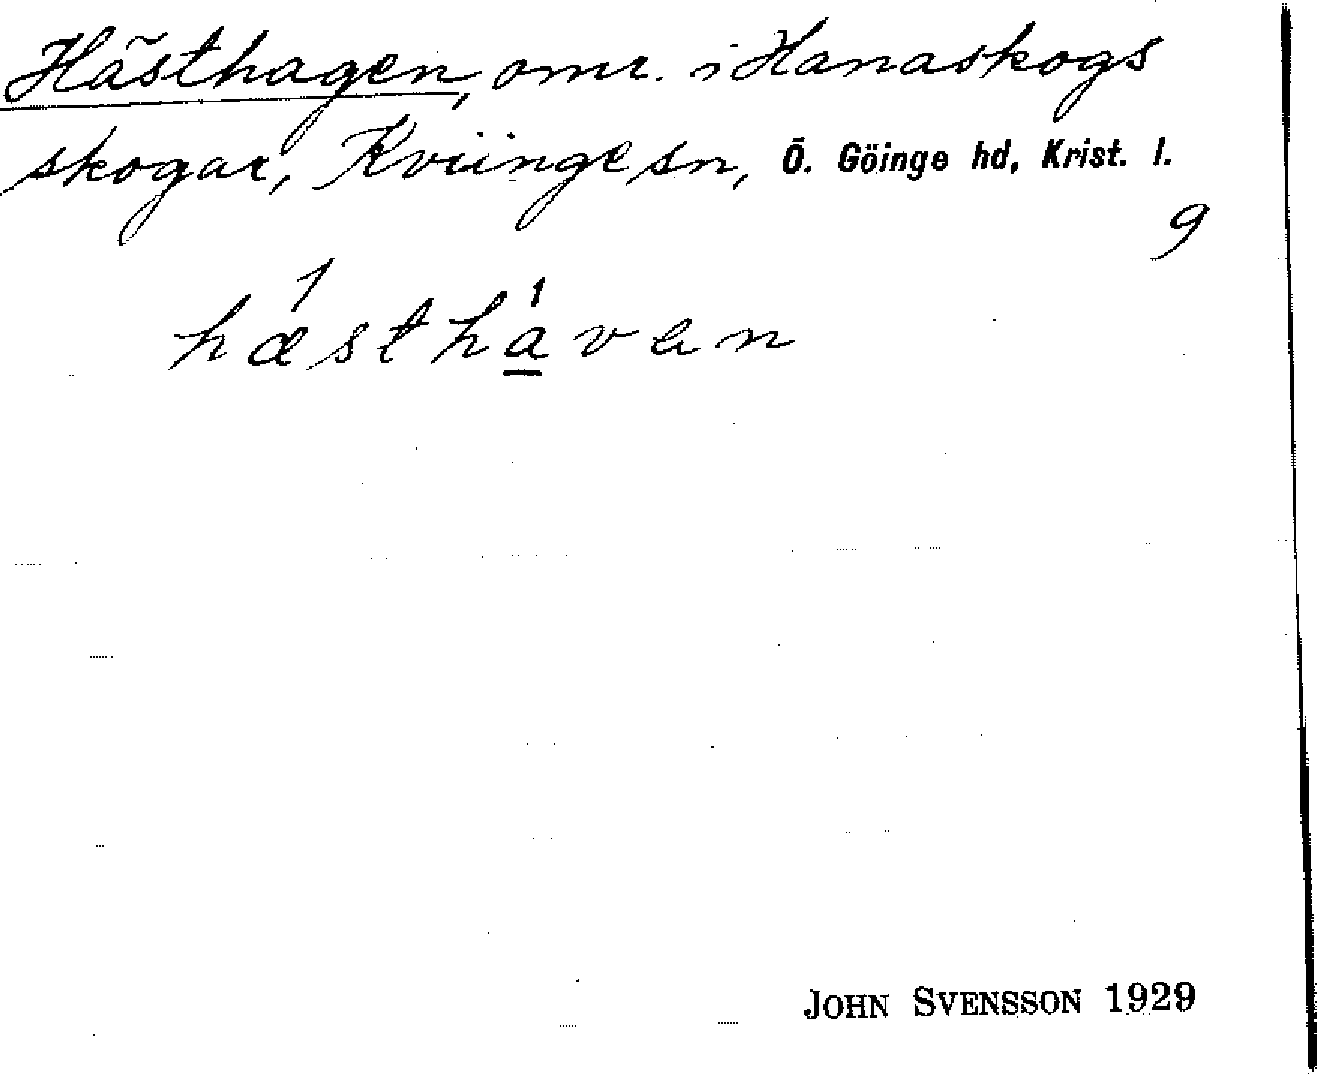 Hästhagen, omr. i Hanaskogs
skogar, Kviinge sn, Ö. Göinge hd, Krist. l.
9
hæsthavan
JOHN SVENSSON 1929